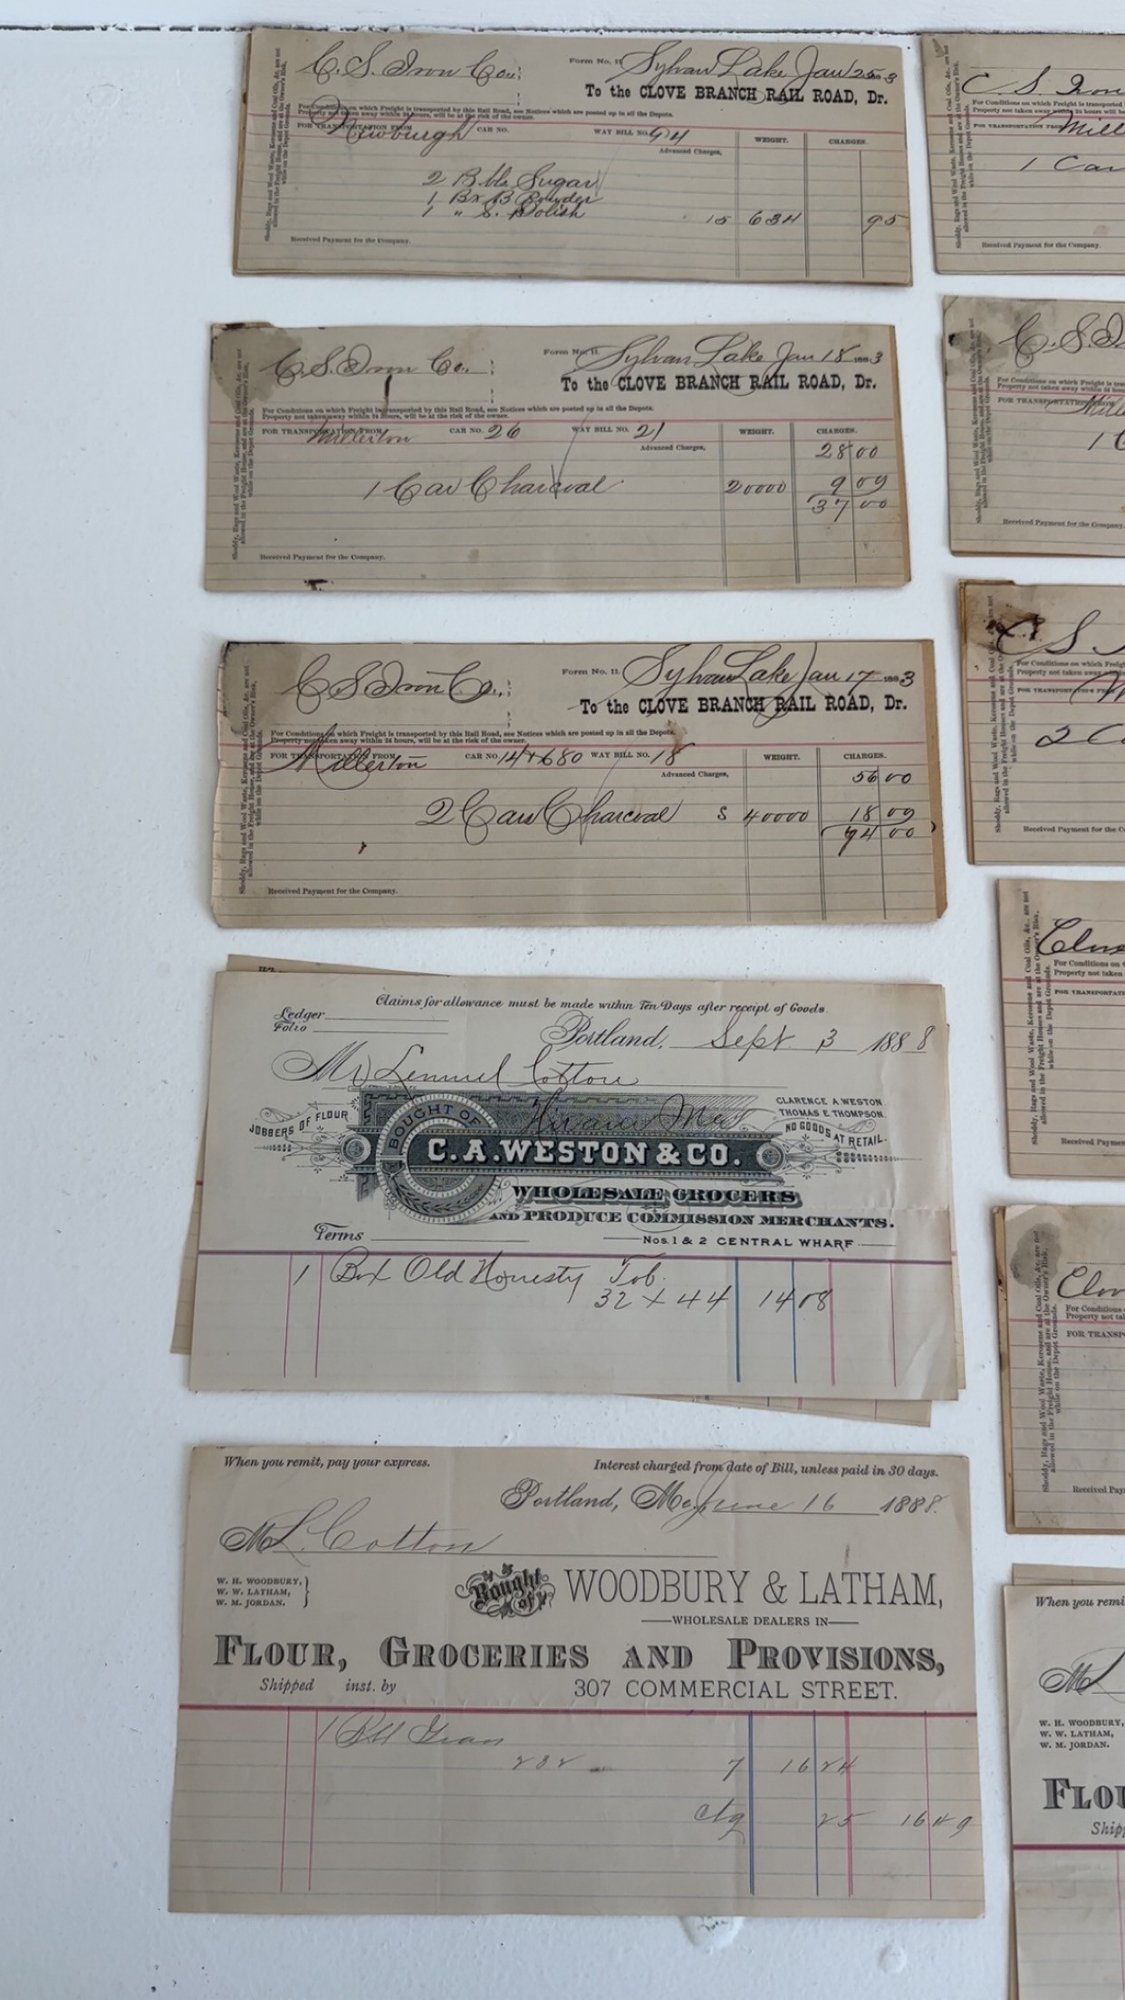 C. S. Iron Co.
Form No. 11.
Sylvan Lake Jan 25 1883
To the CLOVE BRANCH RAIL ROAD, Dr.
For Conditions on which Freight is transported by this Rail Road, see Notices which are posted up in all the Depots.
Property not taken away within 24 hours, will be at the risk of the owner.
FOR TRANSPORTATION FROM Newburgh CAR NO. WAY BILL NO. 94
Advanced Charges, WEIGHT. CHARGES.
2 Bbls Sugar
1 Bx B Powder
1 " S. Polish 15 634 95
Received Payment for the Company.
Shoddy, Rags and Wool Waste, Kerosene and Coal Oils, &c. are not
allowed in the Freight House, and are at the Owner's Risk,
while on the Depot Grounds.
C. S. Iron
For Conditions on which Freight is transported
Property not taken away within 24 hours will be
FOR TRANSPORTATION FROM Mill
1 Car
Received Payment for the Company.
C. S. Iron Co.
Form No. 11.
Sylvan Lake Jan 18 1883
To the CLOVE BRANCH RAIL ROAD, Dr.
For Conditions on which Freight is transported by this Rail Road, see Notices which are posted up in all the Depots.
Property not taken away within 24 hours, will be at the risk of the owner.
FOR TRANSPORTATION FROM Millerton CAR NO. 26 WAY BILL NO. 21
Advanced Charges, WEIGHT. CHARGES.
28 00
1 Car Charcoal 20000 9 00
37 00
Received Payment for the Company.
Shoddy, Rags and Wool Waste, Kerosene and Coal Oils, &c. are not
allowed in the Freight House, and are at the Owner's Risk,
while on the Depot Grounds.
C. S.
FOR TRANSPORTATION FROM
1 C
Received Payment for the Company.
C S Iron Co.
Form No. 11.
Sylvan Lake Jan 17 1883
To the CLOVE BRANCH RAIL ROAD, Dr.
For Conditions on which Freight is transported by this Rail Road, see Notices which are posted up in all the Depots.
Property not taken away within 24 hours, will be at the risk of the owner.
FOR TRANSPORTATION FROM Millerton CAR NO. 14+680 WAY BILL NO. 18
Advanced Charges, WEIGHT. CHARGES.
56 00
2 Cars Charcoal S 40000 18 00
74 00
Received Payment for the Company.
Shoddy, Rags and Wool Waste, Kerosene and Coal Oils, &c. are not
allowed in the Freight House, and are at the Owner's Risk,
while on the Depot Grounds.
C S
For Conditions on which Freigh
Property not taken away within
2 C
Received Payment for the Co
For Conditions on
Property not taken
FOR TRANSPORTATI
Received Paymen
Claims for allowance must be made within Ten Days after receipt of Goods.
Ledger
Folio
Portland, Sept. 3 1888
Mr Lemuel Cotton
Hiram Me
JOBBERS OF FLOUR
BOUGHT OF
CLARENCE A. WESTON
THOMAS E. THOMPSON.
NO GOODS AT RETAIL.
C. A. WESTON & CO.
WHOLESALE GROCERS
AND PRODUCE COMMISSION MERCHANTS.
Terms
Nos. 1 & 2 CENTRAL WHARF
1 Box Old Honesty Tob.
32 x 44 14 08
For Conditions
Property not ta
FOR TRANSP
Received Pay
When you remit, pay your express.
Interest charged from date of Bill, unless paid in 30 days.
Portland, Me, June 16 1888.
M L. Cotton
W. H. WOODBURY,
W. W. LATHAM,
W. M. JORDAN.
Bought of
WOODBURY & LATHAM,
WHOLESALE DEALERS IN
FLOUR, GROCERIES AND PROVISIONS,
Shipped inst. by
307 COMMERCIAL STREET.
1 Bbl Gran
232 7 16 24
Ctg 25 16 49
When you remi
M
W. H. WOODBURY,
W. W. LATHAM,
W. M. JORDAN.
FLOU
Ship